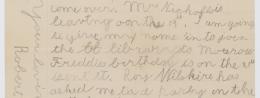 come over. Mrs
leaving on the I am going
to give my name in to join
the library
Freddies birthday is on the
sent it. Roy Wilshire has
asked me to a party on the
your loving
Robert